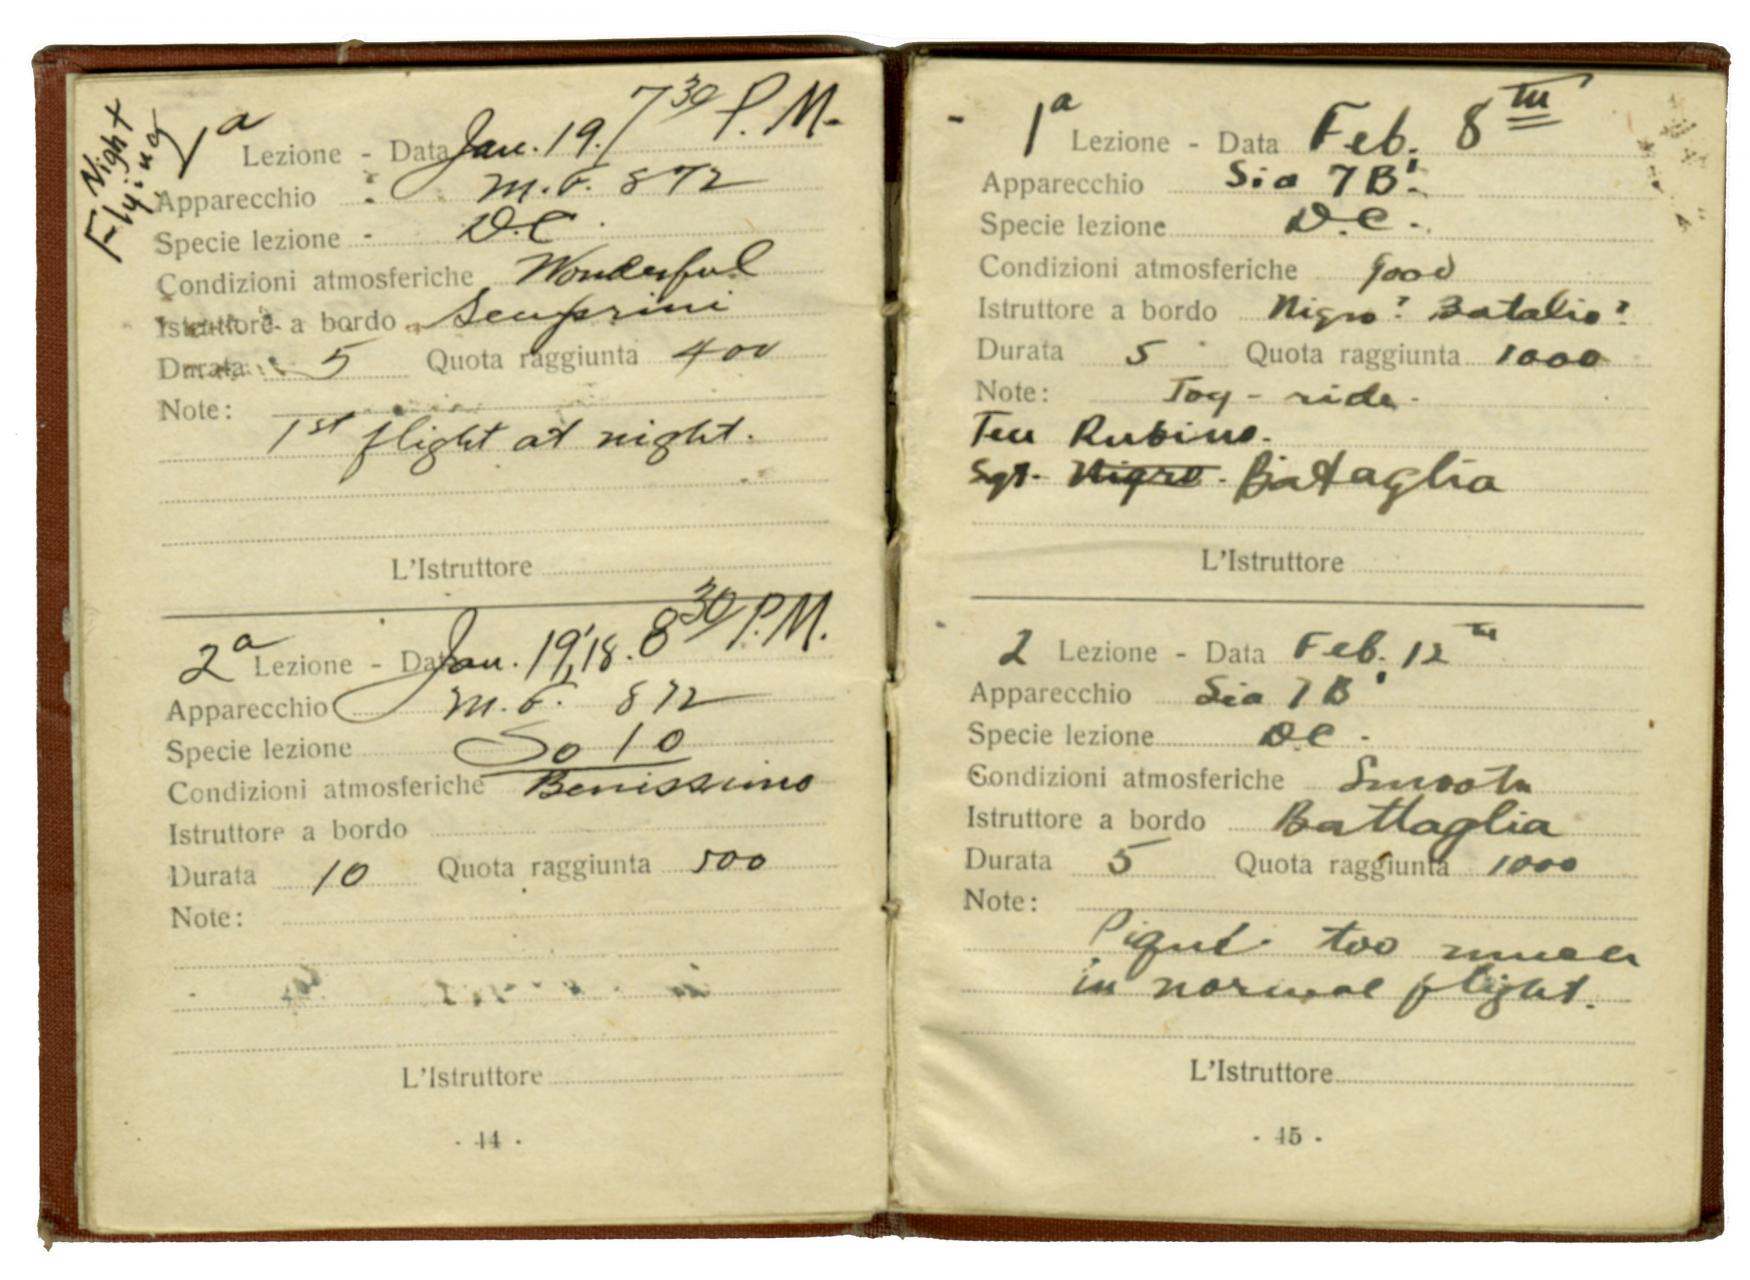 Night
Flying
1a Lezione - Data Jan. 19. 7 30 P.M.
Apparecchio M.F. 872
Specie lezione - D.C.
Condizioni atmosferiche Wonderful
Istruttore a bordo Semprini
Durata 5 Quota raggiunta 400
Note:
1st flight at night.
L'Istruttore
2a Lezione - Data Jan. 19, '18. 8 30 P.M.
Apparecchio M.F. 872
Specie lezione Solo
Condizioni atmosferiche Benissimo
Istruttore a bordo
Durata 10 Quota raggiunta 500
Note:
L'Istruttore
- 44 -
1a Lezione - Data Feb. 8th
Apparecchio Sia 7B'.
Specie lezione D.C.
Condizioni atmosferiche good
Istruttore a bordo Nigro? Batalio?
Durata 5 Quota raggiunta 1000
Note: Joy-ride.
Ten Rubino.
Sgt. Nigro. Bataglia
L'Istruttore
2 Lezione - Data Feb. 12th
Apparecchio Sia 7B'
Specie lezione D.C.
Condizioni atmosferiche Smooth
Istruttore a bordo Battaglia
Durata 5 Quota raggiunta 1000
Note:
Piqué too much
in normal flight.
L'Istruttore
- 45 -